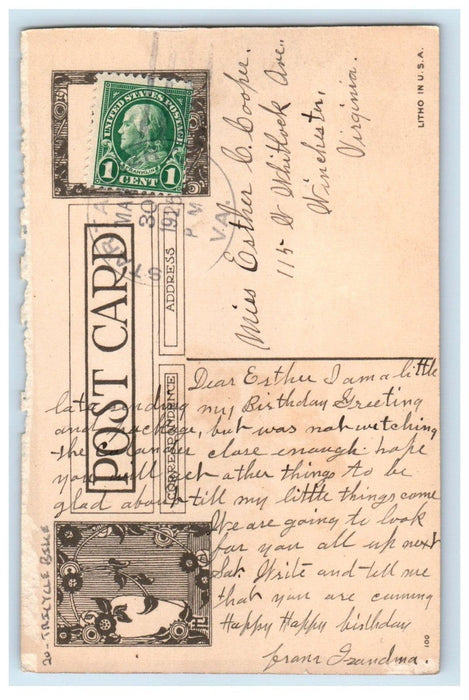 UNITED STATES POSTAGE
FRANKLIN
1 CENT 1
MAR
30
P M
VA.
POST CARD
ADDRESS
CORRESPONDENCE
LITHO IN U.S.A.
Miss Esther C. Cooper.
115 W Whitlock Ave.
Winchester,
Virginia.
Dear Esther I am a little
late sending my Birthday Greeting
and package, but was not wetching
the close enough. hope
you will get ather things to be
glad about till my little things come
We are going to look
for you all up next
Sat. Write and tell me
that you are cumming
Happy Happy birthday
Grandma.
100
20-TRICYCLE BELLE